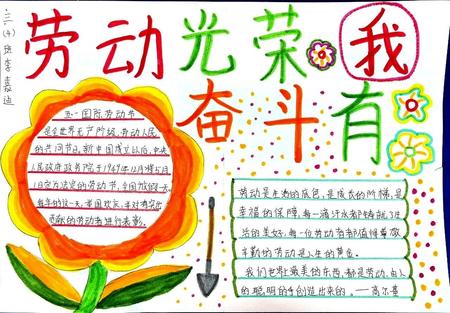 三(4)班李嘉迪
劳动光荣我
奋斗有
五一国际劳动节
是全世界无产阶级、劳动人民
的共同节日,新中国成立以后,中央
人民政府政务院于1949年12月将5月
1日定为法定的劳动节,全国放假一天。
每年的这一天,举国欢庆,并对有突出
贡献的劳动者进行表彰。
劳动是生活的底色,是成长的阶梯,是
幸福的保障,每一滴汗水都铸就了生
活的美好,每一位劳动者都值得尊敬
辛勤的劳动是人生的黄金。
我们世界上最美的东西,都是劳动、由人
的聪明的手创造出来的。——高尔基